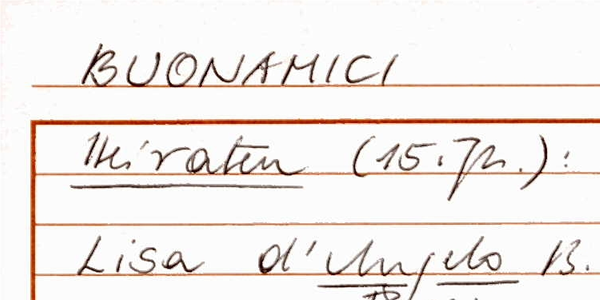 BUONAMICI
Heiraten (15. Jh.):
Lisa d'Angelo B.